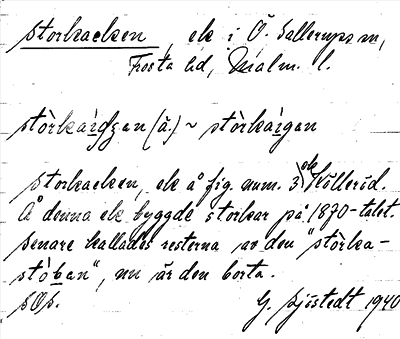 Storkaeken, ek i Ö. Sallerups sn,
Frosta hd, Malm. l.
stòrkaìdʒan (ä.) ~ stòrkaìgan
Storkaeken, ek å fig. num. 3, ek Kölleröd.
Å denna ek byggde storkar på 1870-talet.
Senare kallades resterna av den "stòrka-
stòban", nu är den borta.
SOs.
G. Sjöstedt 1940